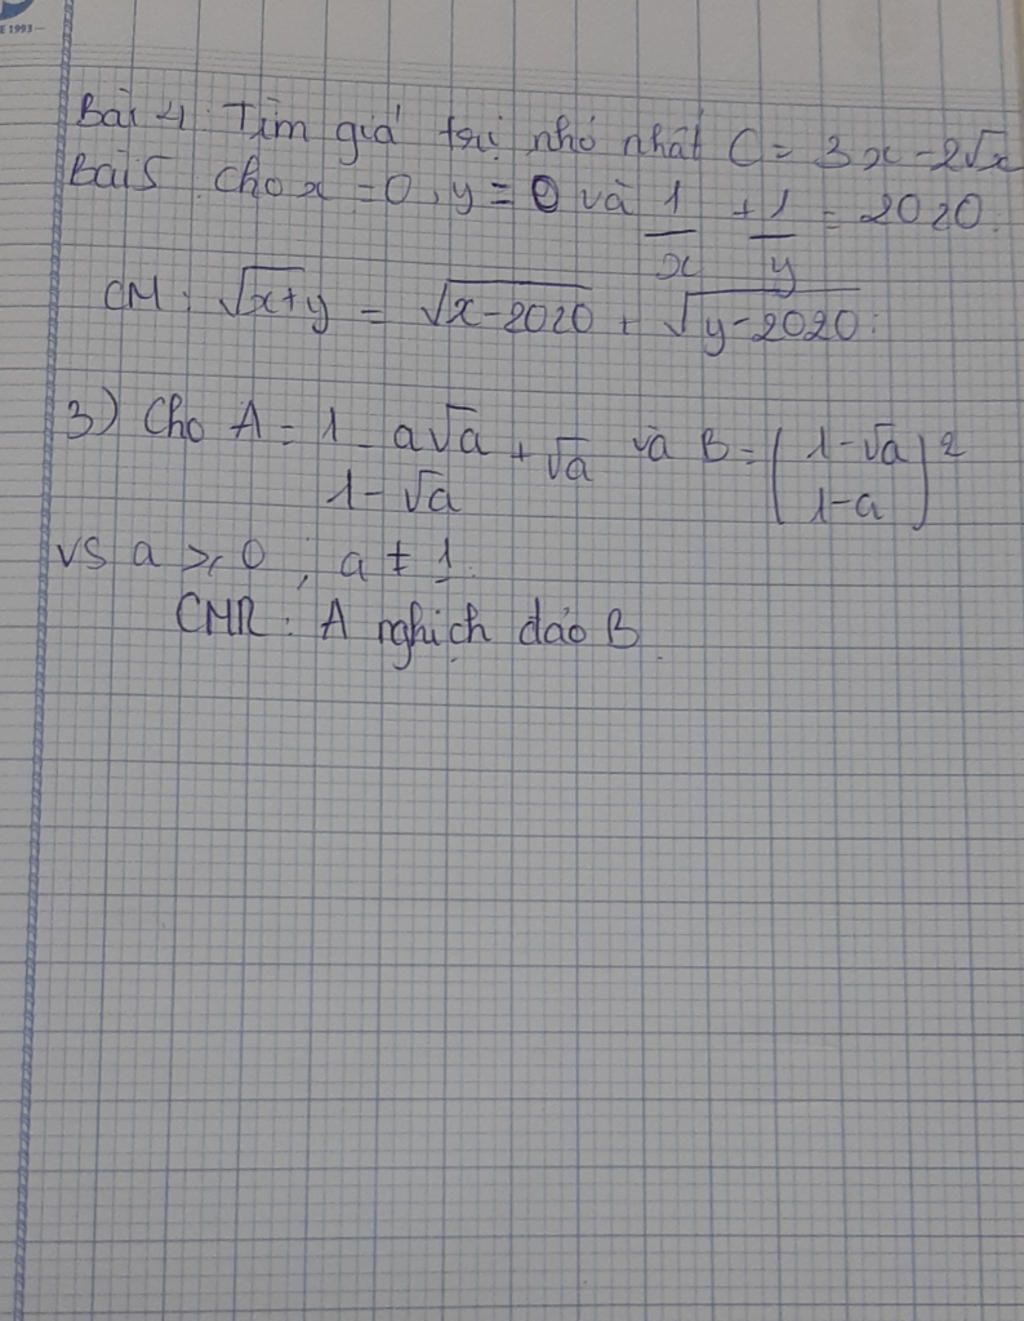 E 1993 —
Bài 4: Tìm giá trị nhỏ nhất C = 3x - 2√x
Bài 5: Cho x = 0, y = 0 và 1/x + 1/y = 2020.
CM: √x+y = √x-2020 + √y-2020.
3) Cho A = 1 - a√a / 1 - √a + √a và B = (1 - √a / 1 - a)²
vs a ⩾ 0 ; a ≠ 1.
CMR: A nghịch đảo B.